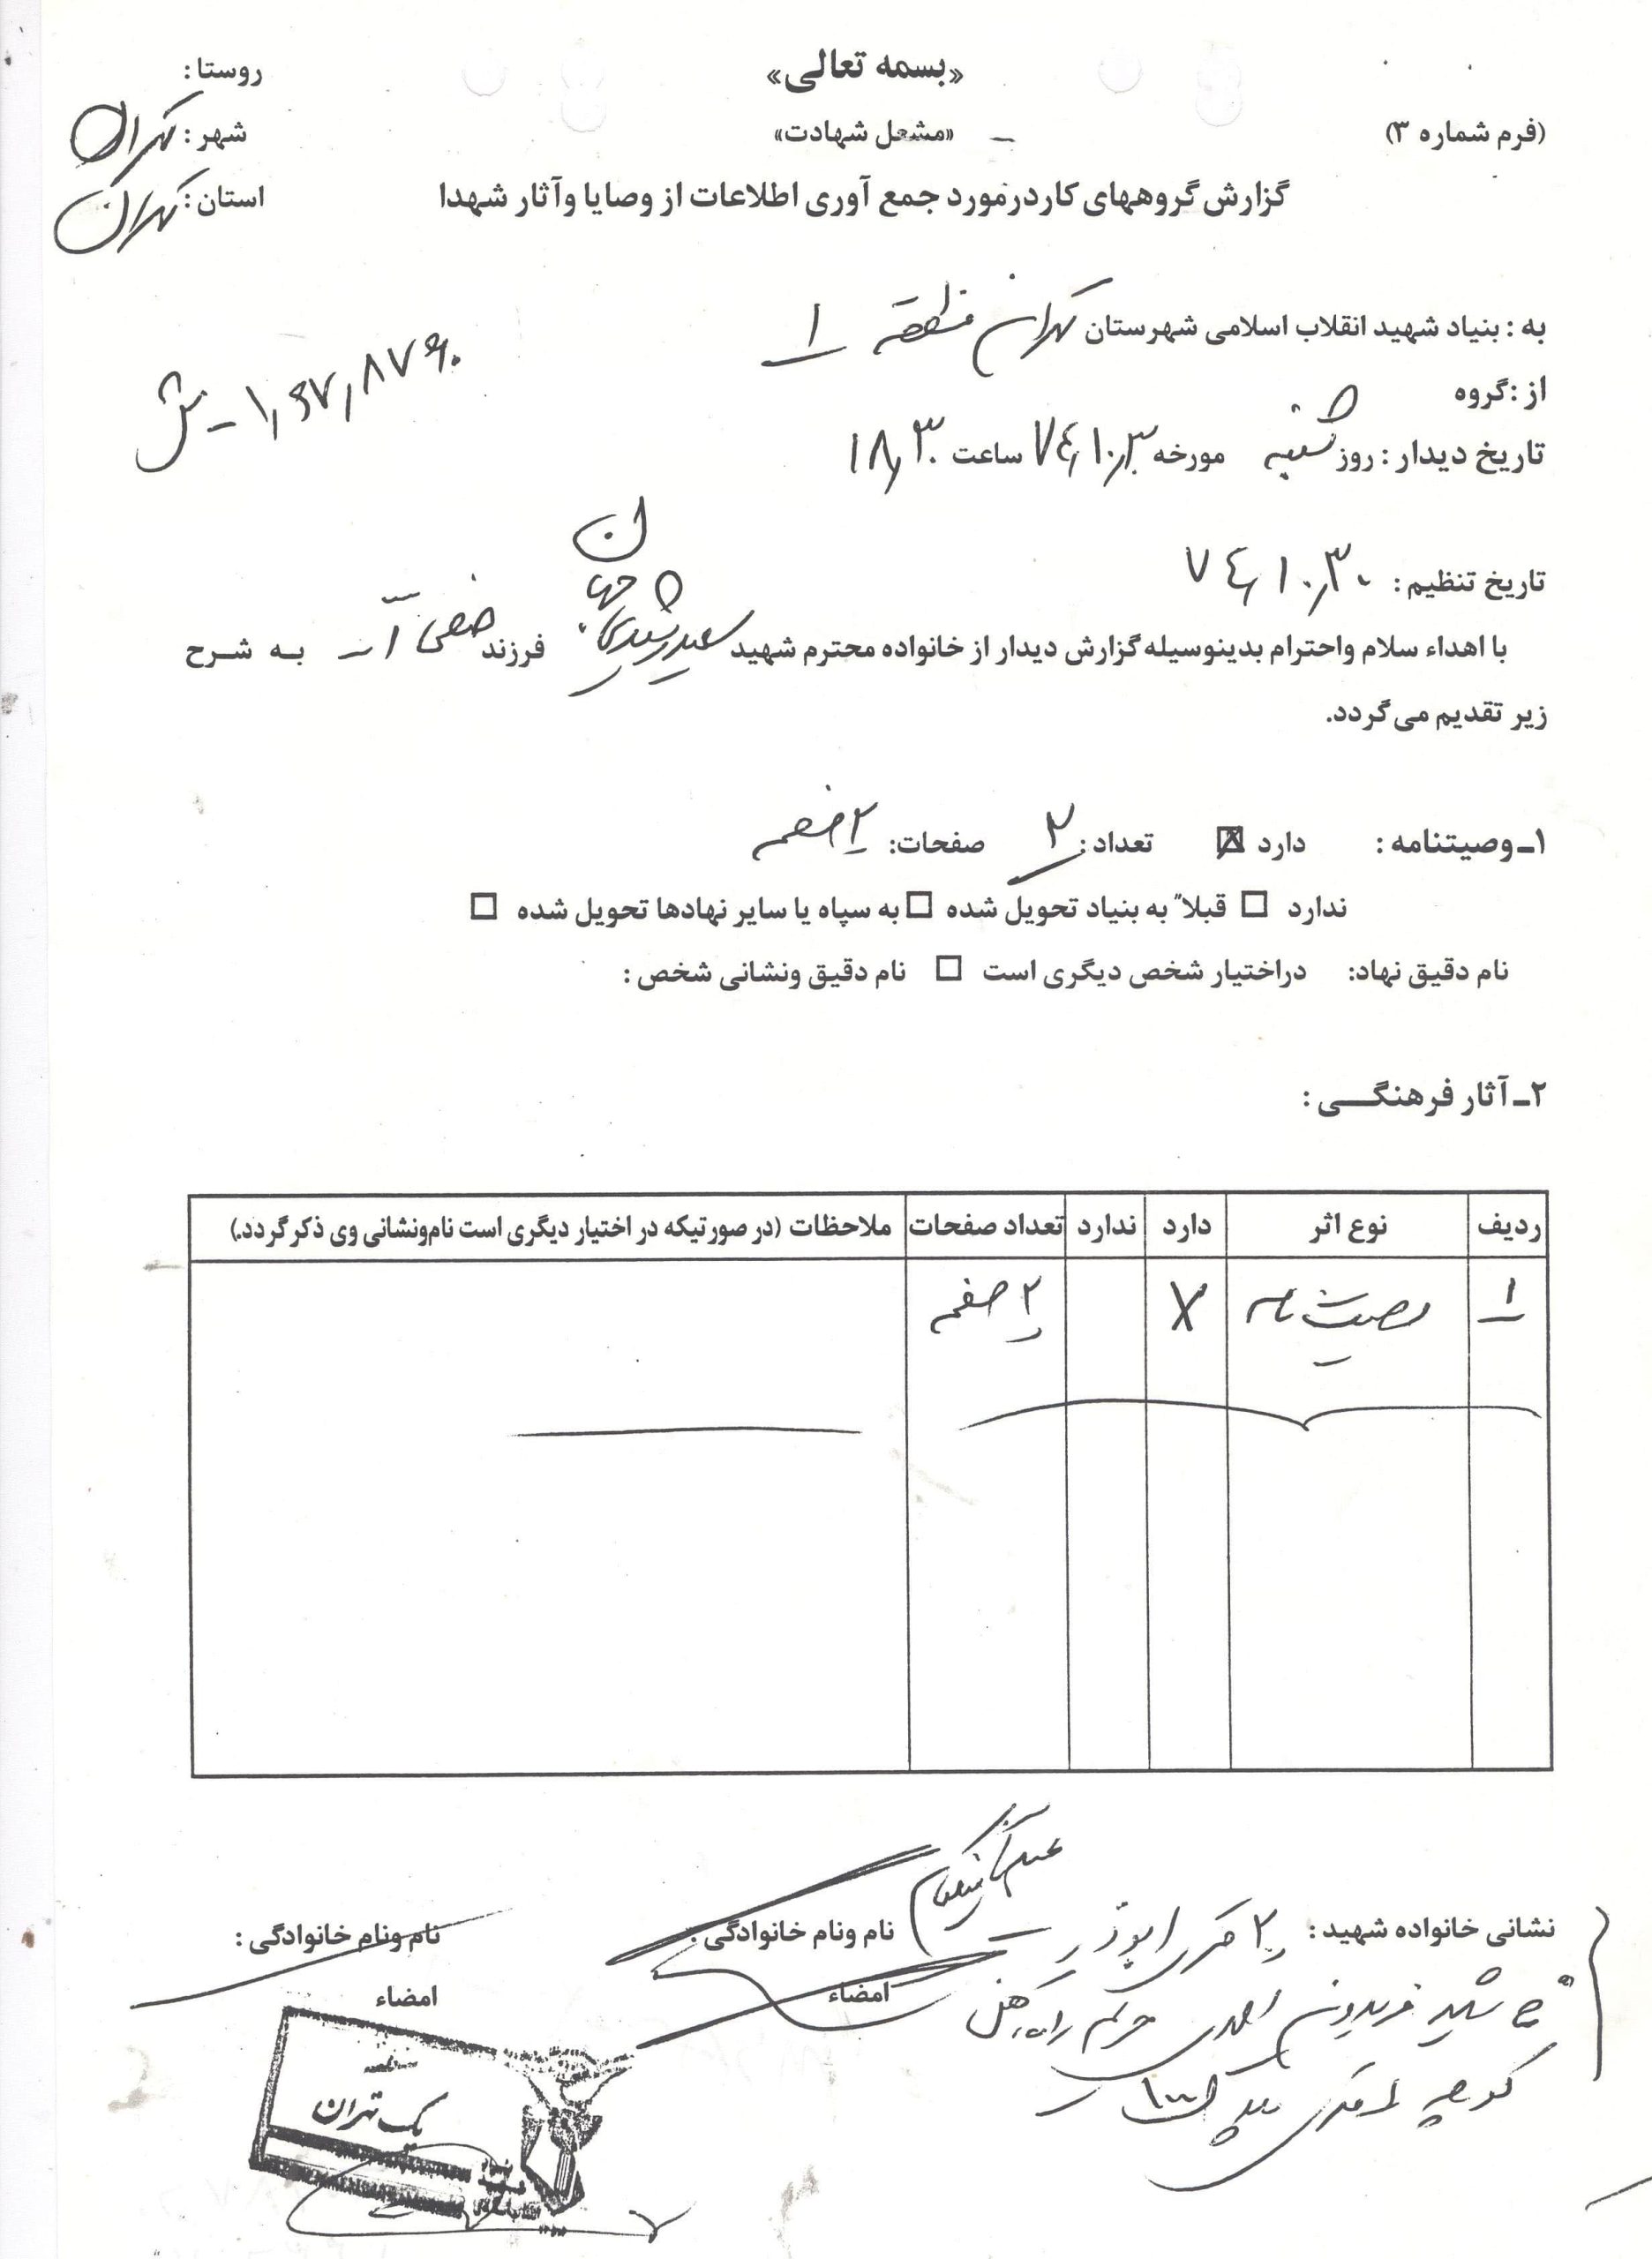 «بسمه تعالی»
(فرم شماره ۳)
«مشعل شهادت»
روستا :
شهر : تهران
استان : تهران
گزارش گروههای کار درمورد جمع آوری اطلاعات از وصایا وآثار شهدا
به : بنیاد شهید انقلاب اسلامی شهرستان تهران منطقه ۱
از :گروه
تاریخ دیدار : روز شنبه مورخه ۷۴,۱۰,۳۰ ساعت ۱۸,۳۰
تاریخ تنظیم : ۷۴,۱۰,۳۰
با اهداء سلام واحترام بدینوسیله گزارش دیدار از خانواده محترم شهید سعید فرزند به شرح
زیر تقدیم می گردد.
۱ـ وصیتنامه : دارد ☒ تعداد : ۲ صفحات: ۲ صفحه
ندارد □ قبلاً به بنیاد تحویل شده □ به سپاه یا سایر نهادها تحویل شده □
نام دقیق نهاد: دراختیار شخص دیگری است □ نام دقیق ونشانی شخص :
۲ـ آثار فرهنگی :
ردیف نوع اثر دارد ندارد تعداد صفحات ملاحظات (در صورتیکه در اختیار دیگری است نام‌ونشانی وی ذکر گردد.)
۱ وصیت نامه X ۲ صفحه
نشانی خانواده شهید : ابوذر نام ونام خانوادگی : نام ونام خانوادگی :
امضاء امضاء
شهید فریدون احمدی
کوچه پلاک
یک تهران